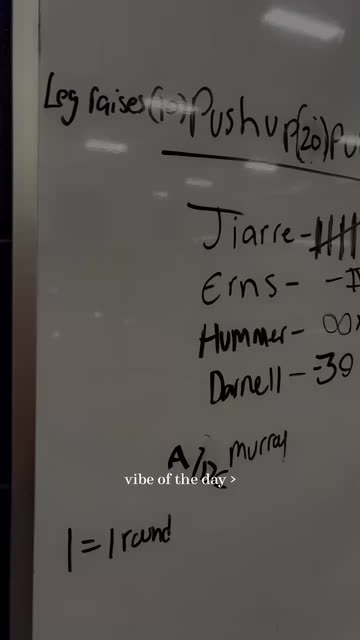 Leg raises(10) Pushup(20) Pu
Jiarre-
Erns- -
Hummer- ∞
Darnell- -39
A/ Murray
vibe of the day >
1 = 1 round